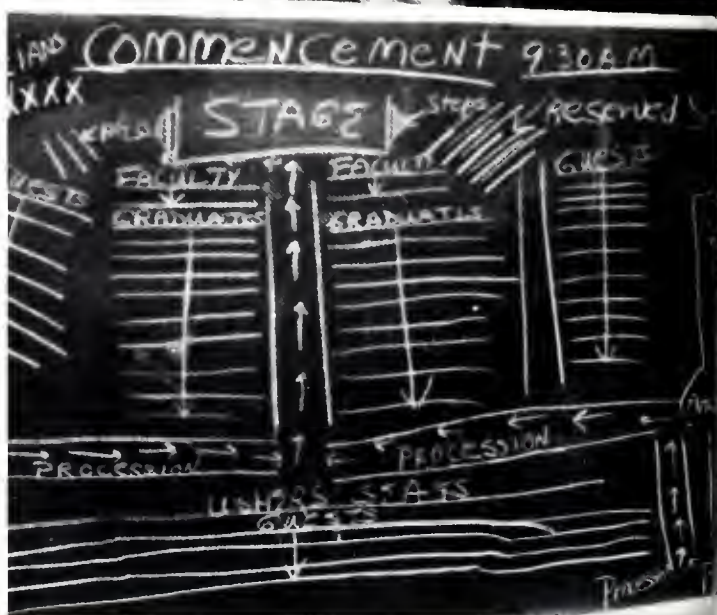 COMMENCEMENT 9:30 A.M
XXXX
STAGE
Steps
Reserved
GUESTS
FACULTY
FACULTY
GRADUATES
GRADUATES
PROCESSION
PROCESSION
USHERS SEATS
GUESTS